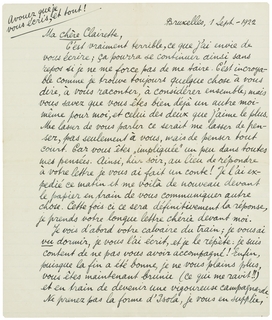 Avouez que je
vous écris fort tout!
Bruxelles, 1 Sept - 1922
Ma chère Clairette,
C'est vraiment terrible, ce que j'ai envie de
vous écrire; ça pourra se continuer ainsi sans
repos si je ne me force pas de me taire. C'est incroya-
ble comme je trouve toujours quelque chose à vous
dire, à vous raconter, à considérer ensemble, mais
vous savez que vous êtes bien déjà un autre moi-
même pour moi, et celui des deux que j'aime le plus.
Me lasser de vous parler ce serait me lasser de pen-
ser, pas seulement à vous, mais de penser tout
court. Car vous êtes "impliquée" un peu dans toutes
mes pensées. Ainsi, hier soir, au lieu de répondre
à votre lettre je vous ai fait un conte! Je l'ai ex-
pédié ce matin et me voilà de nouveau devant
le papier en train de vous communiquer autre
chose. Cette fois ci ce sera définitivement la réponse,
je prends votre longue lettre chérie devant moi.
Je vois d'abord votre calvaire du train; je vous ai
vu dormir, je vous l'ai écrit, et je le répète. Je suis
content de ne pas vous avoir accompagné!! Enfin,
puisque la fin a été bonne, je ne vous plains plus,
vous êtes maintenant brunie (ce qui me ravit!!)
et en train de devenir une vigoureuse campagnarde.
Ne prenez pas la forme d'Isola, je vous en supplie,